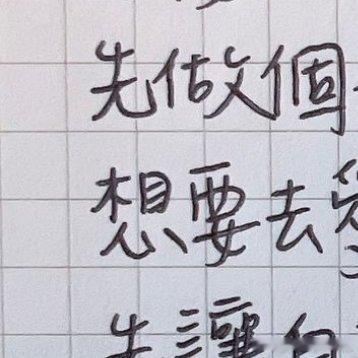 先做個
想要去
先讓自